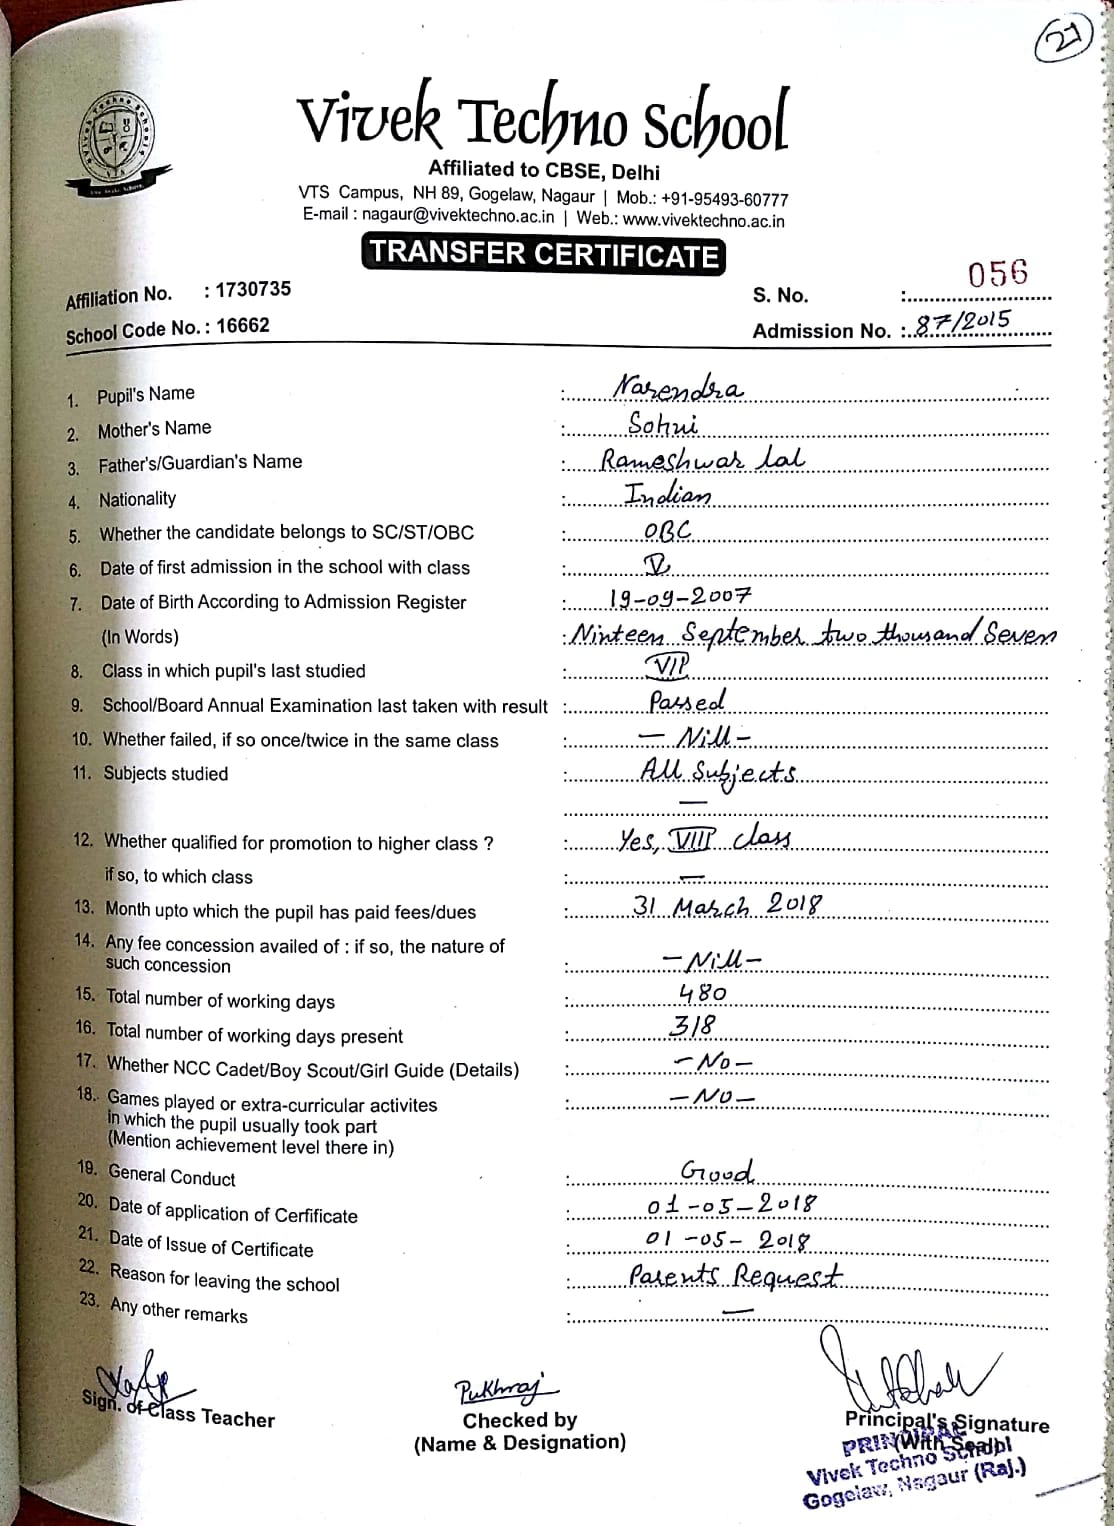 27
Vivek Techno School
Affiliated to CBSE, Delhi
VTS Campus, NH 89, Gogelaw, Nagaur | Mob.: +91-95493-60777
E-mail : nagaur@vivektechno.ac.in | Web.: www.vivektechno.ac.in
TRANSFER CERTIFICATE
Affiliation No. : 1730735
S. No. : 056
School Code No. : 16662
Admission No. : 87/2015
1. Pupil's Name : Narendra
2. Mother's Name : Sohni
3. Father's/Guardian's Name : Rameshwar lal
4. Nationality : Indian
5. Whether the candidate belongs to SC/ST/OBC : OBC
6. Date of first admission in the school with class : V
7. Date of Birth According to Admission Register : 19-09-2007
(In Words) : Ninteen September two thousand Seven
8. Class in which pupil's last studied : VII
9. School/Board Annual Examination last taken with result : Passed
10. Whether failed, if so once/twice in the same class : - Nill -
11. Subjects studied : All Subjects
—
12. Whether qualified for promotion to higher class ? : Yes, VIII class
if so, to which class : —
13. Month upto which the pupil has paid fees/dues : 31 March 2018
14. Any fee concession availed of : if so, the nature of
such concession : - Nill -
15. Total number of working days : 480
16. Total number of working days present : 318
17. Whether NCC Cadet/Boy Scout/Girl Guide (Details) : - No -
18. Games played or extra-curricular activites : - No -
in which the pupil usually took part
(Mention achievement level there in)
19. General Conduct : Good
20. Date of application of Cerfificate : 01-05-2018
21. Date of Issue of Certificate : 01-05-2018
22. Reason for leaving the school : Parents Request
23. Any other remarks : —
Pukhraj
Sign. of Class Teacher
Checked by
(Name & Designation)
Principal's Signature
(With Seal)
PRINCIPAL
Vivek Techno School
Gogelaw, Nagaur (Raj.)